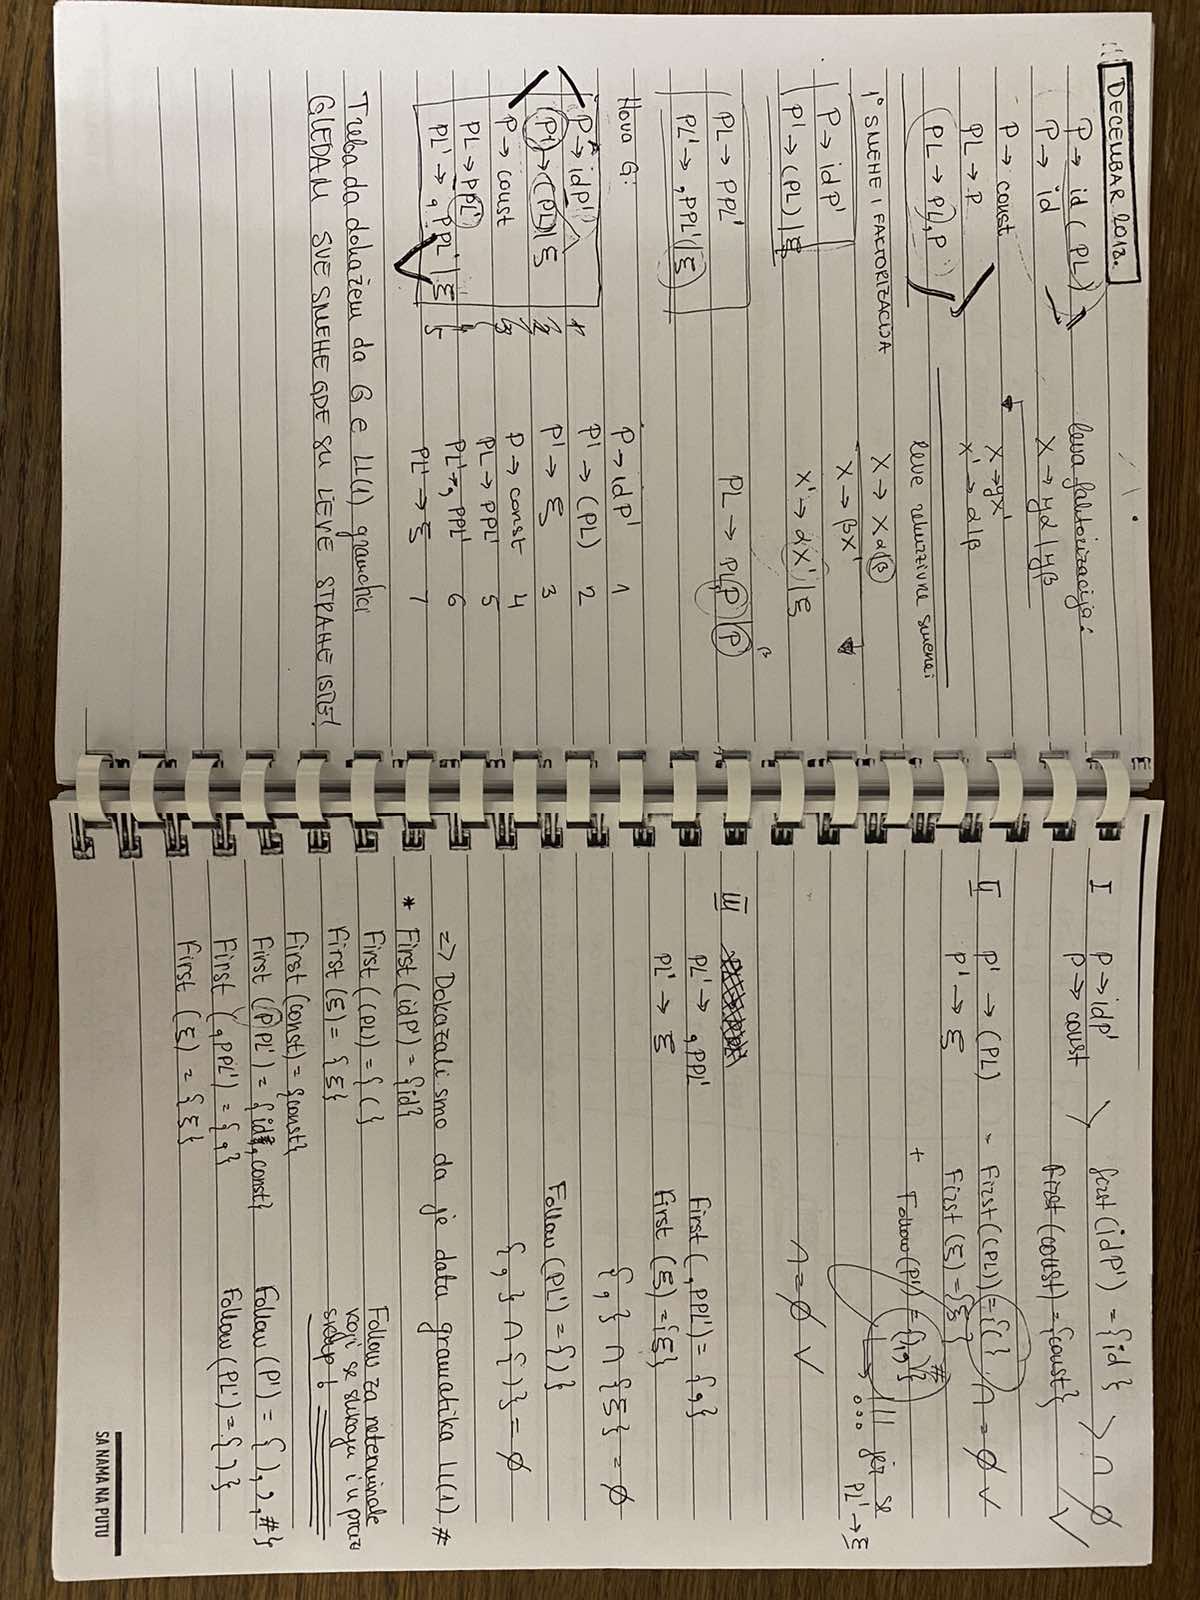 DECEMBAR 2018.
P → id (PL)
P → id
P → const
PL → P
PL → PL, P
leva faktorizacija:
X → yα | yβ
X → yX'
X' → α | β
leve rekurzivne smene:
1° SMENE I FAKTORIZACIJA
X → Xα | β
X → βX'
X' → αX' | ξ
P → id P'
P' → (PL) | ξ
PL → PL, P | P
β
PL → PPL'
PL' → , PPL' | ξ
Nova G:
P → idP' 1
P' → (PL) | ξ 2
P → const 3
PL → PPL' 4
PL' → , PPL' | ξ 5
P → idP' 1
P' → (PL) 2
P' → ξ 3
P → const 4
PL → PPL' 5
PL' → , PPL' 6
PL' → ξ 7
Treba da dokažem da G e LL(1) gramatici
GLEDAM SVE SMENE GDE SU LEVE STRANE ISTE!
I P → idP' First (idP') = {id}
P → const First (const) = {const} ∩ ∅ ✓
II P' → (PL) First ((PL)) = {(} ∩ = ∅ ✓
P' → ξ First (ξ) = {ξ}
+ Follow (P') = {), , #} jer se
PL' → ξ
∩ = ∅ ✓
III
PL' → , PPL' First (, PPL') = { , }
PL' → ξ First (ξ) = {ξ}
{ , } ∩ {ξ} = ∅
Follow (PL') = { ) }
{ , } ∩ { ) } = ∅
=> Dokazali smo da je data gramatika LL(1). #
* First (idP') = {id}
First ((PL)) = { ( }
First (ξ) = {ξ}
First (const) = {const}
First (PPL') = {id, const}
First (, PPL') = { , }
First (ξ) = {ξ}
Follow za neterminale
koji se slikaju i u prazan
skup!
Follow (P') = { ), , , # }
Follow (PL') = { ) }
SA NAMA NA PUTU